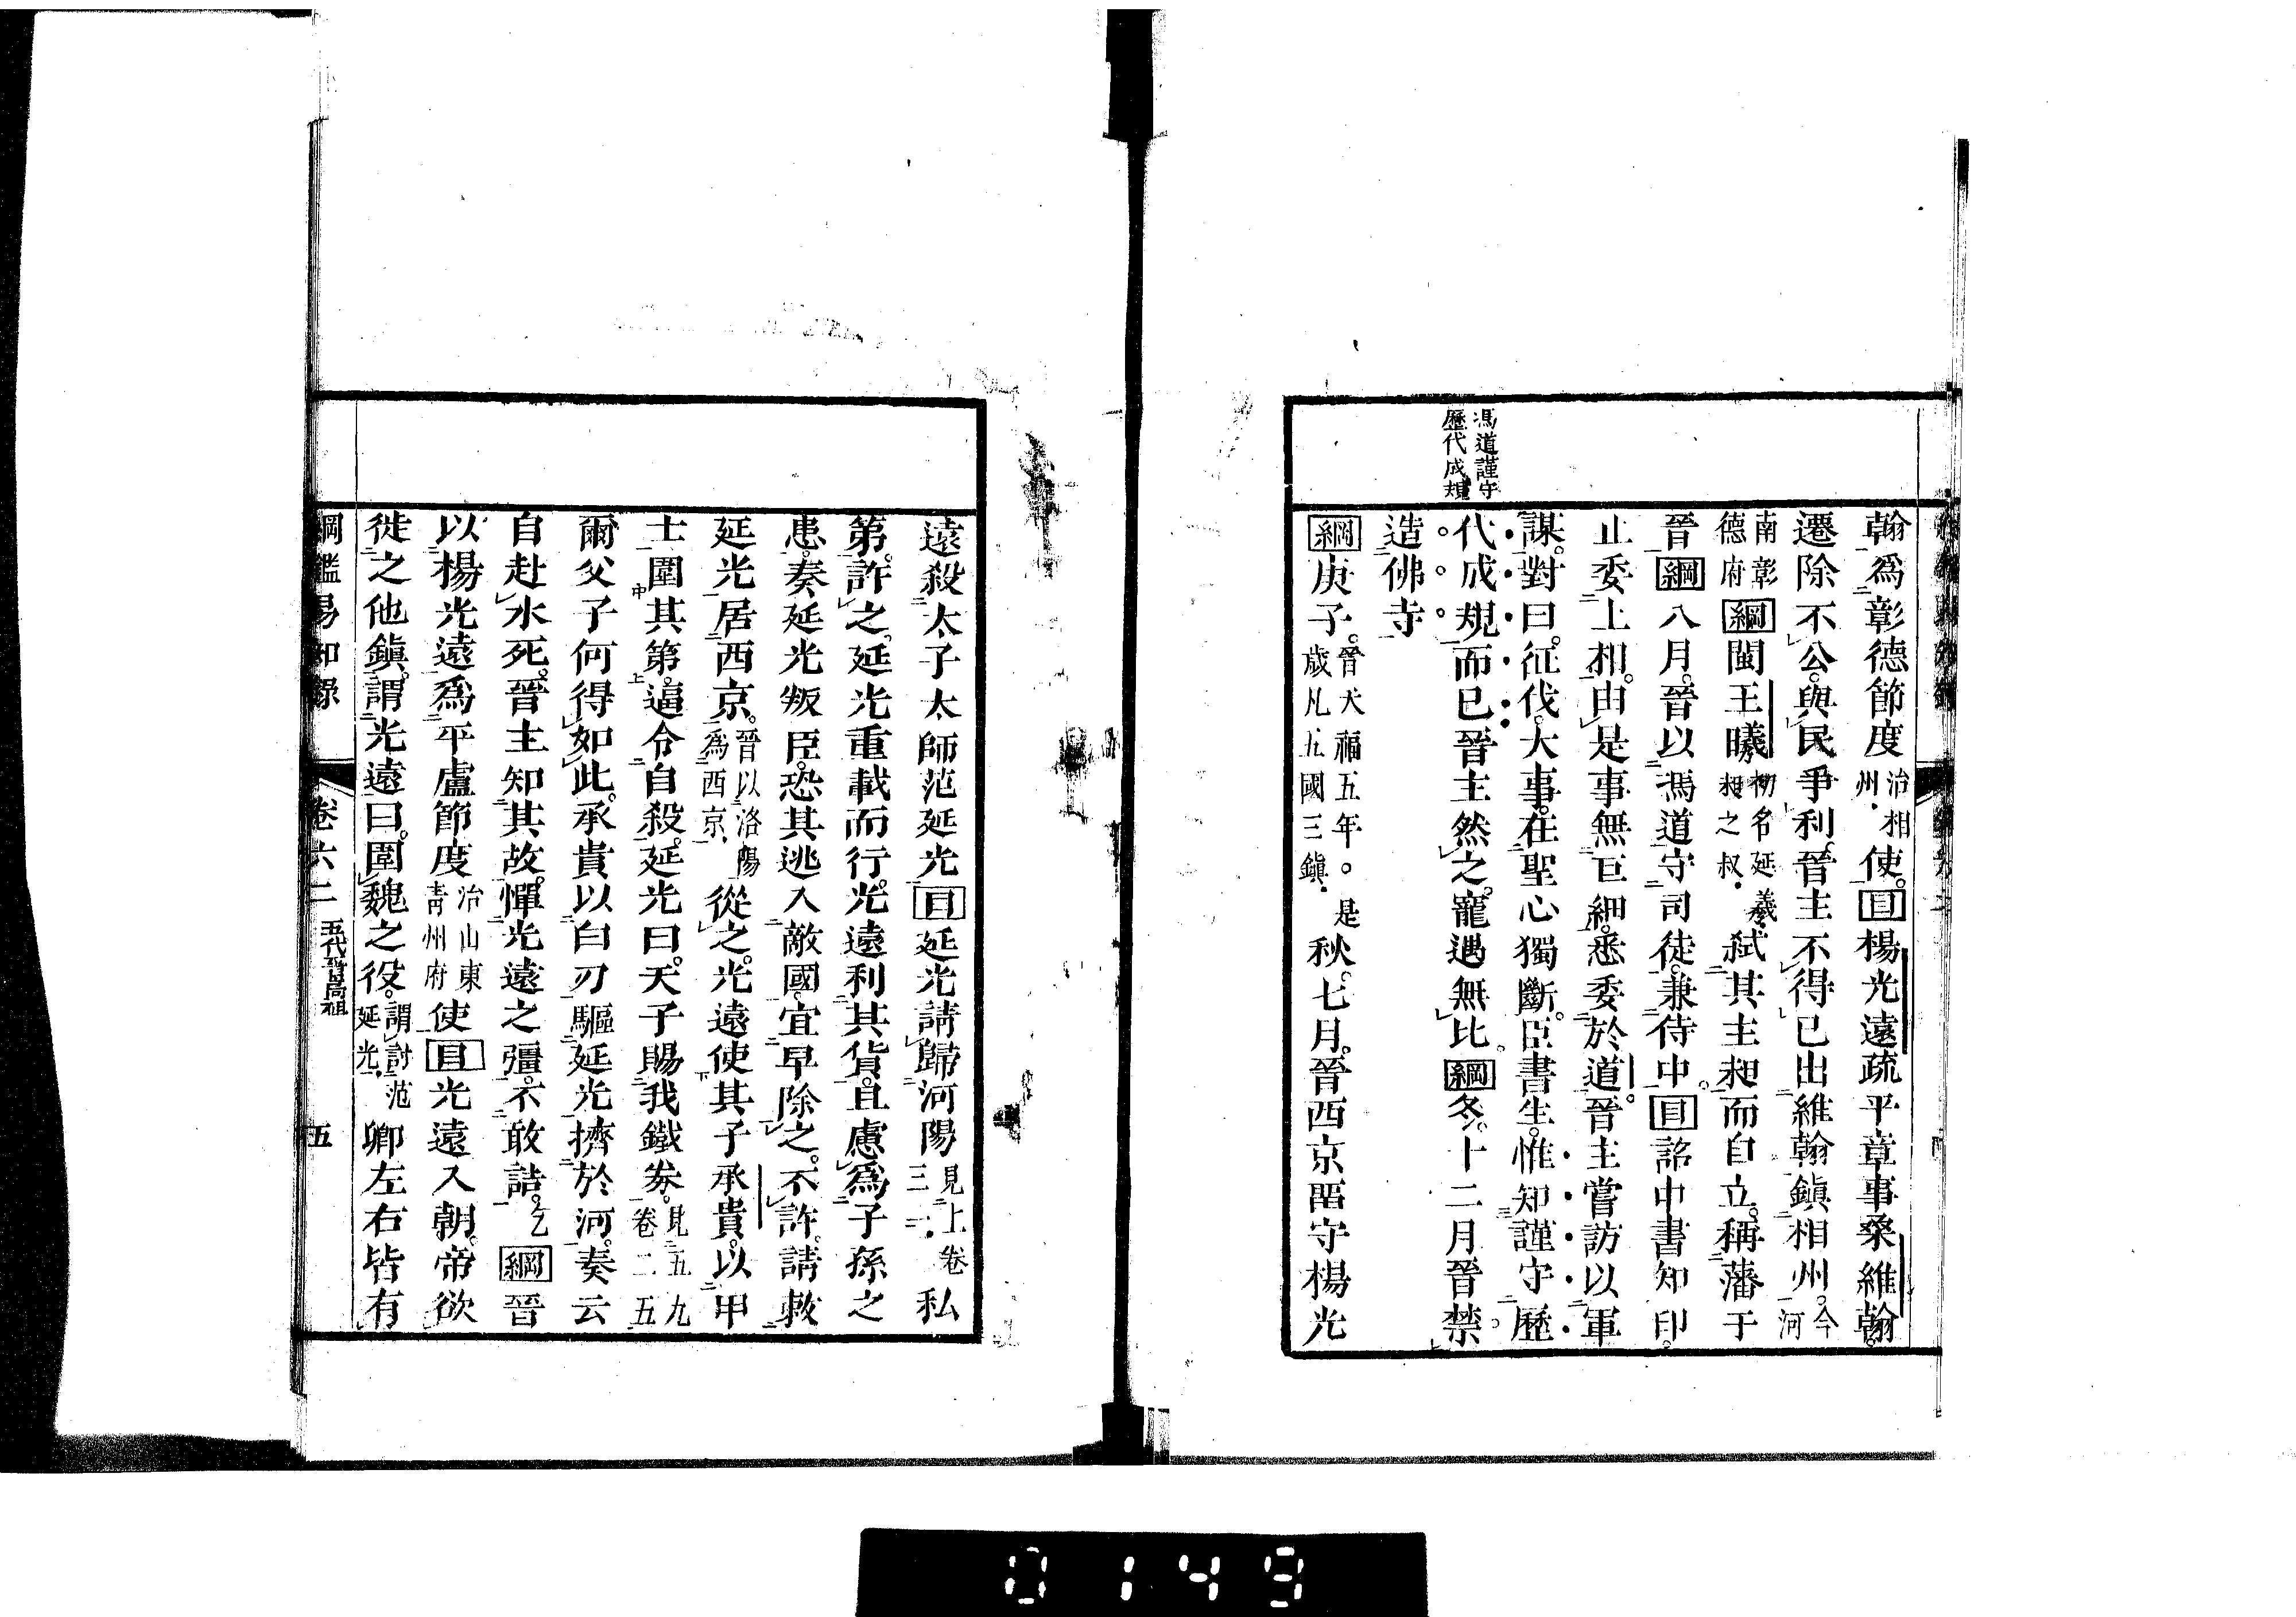 馮道謹守
歷代成規
翰爲彰德節度治相州使。目楊光遠疏平章事桑維翰。
遷除不公。與民爭利。晉主不得已出維翰鎭相州。今河
南彰德府綱閩王曦初名延羲昶之叔弑其主昶而自立。稱藩于
晉綱八月。晉以馮道守司徒。兼侍中。目詔中書知印。
止委上相。由是事無巨細。悉委於道。晉主嘗訪以軍
謀。對曰。征伐大事。在聖心獨斷。臣書生。惟知謹守歷
代成規而已晉主然之。寵遇無比。綱冬。十二月晉禁
造佛寺
綱庚子。晉天福五年。是歲凡五國三鎭秋。七月。晉西京畱守楊光
遠殺太子太師范延光目延光請歸河陽見上卷三一私
第。許之。延光重載而行。光遠利其貨。且慮爲子孫之
患。奏延光叛臣。恐其逃入敵國。宜早除之。不許。請敕
延光居西京。晉以洛陽爲西京從之。光遠使其子承貴。以甲
士圍其第。逼令自殺。延光曰。天子賜我鐵券。見五九卷二五
爾父子何得如此。承貴以白刃驅延光擠於河。奏云
自赴水死。晉主知其故。憚光遠之彊。不敢詰。綱晉
以楊光遠爲平盧節度治山東青州府使目光遠入朝。帝欲
徙之他鎭。謂光遠曰。圍魏之役。謂討范延光卿左右皆有
綱鑑易知錄 卷六二 五代晉高祖 五
0149